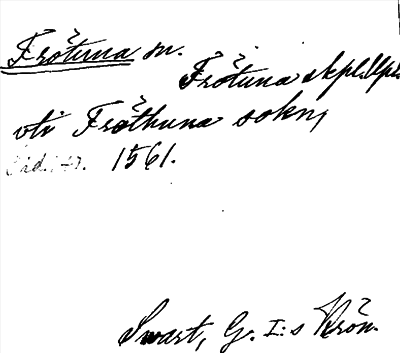 Frötuna sn.
Frötuna skpl. Upl.
uti Fröthuna sokn,
1561.
Swart, G. I:s Krön.